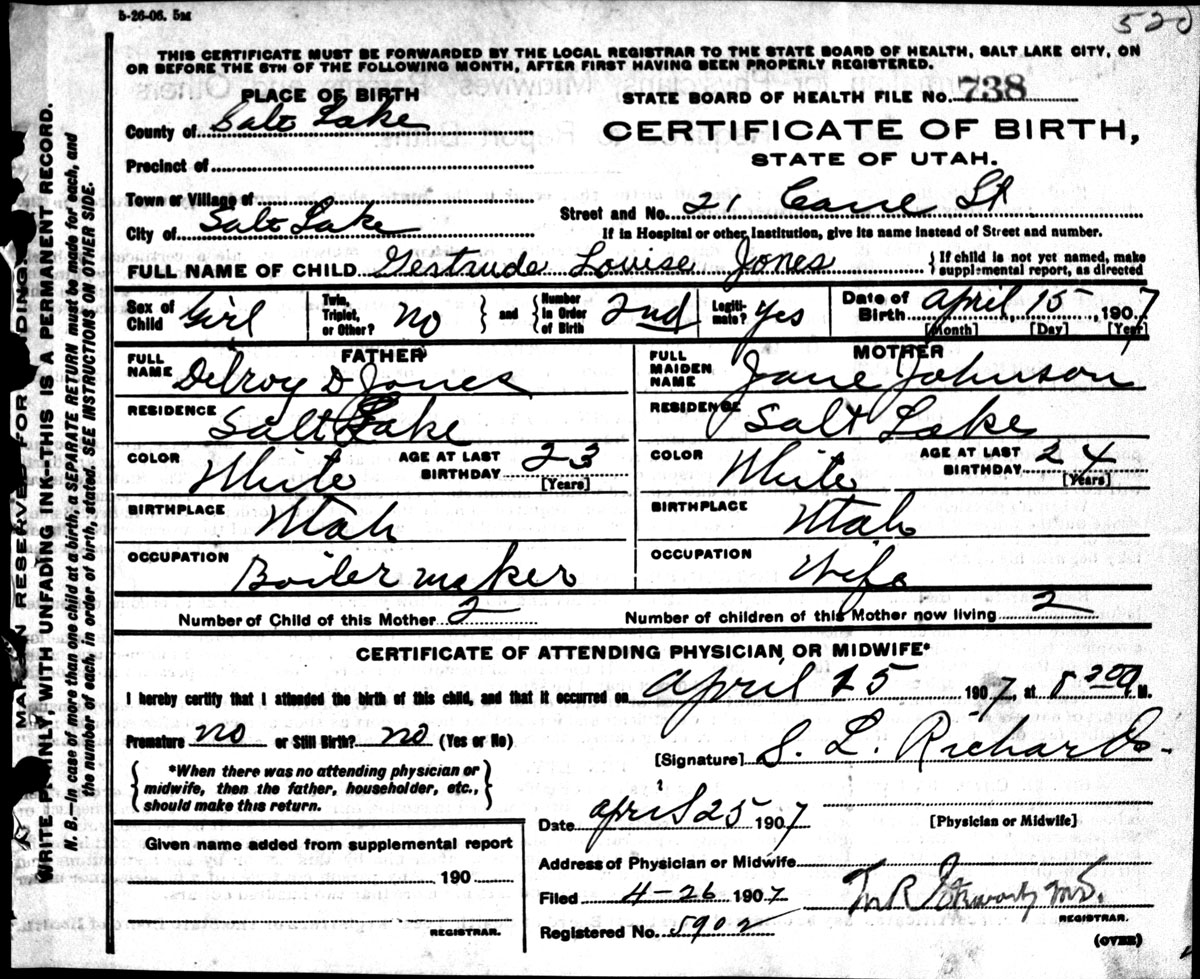 5-26-06. 5M
520
THIS CERTIFICATE MUST BE FORWARDED BY THE LOCAL REGISTRAR TO THE STATE BOARD OF HEALTH, SALT LAKE CITY, ON
OR BEFORE THE 5TH OF THE FOLLOWING MONTH, AFTER FIRST HAVING BEEN PROPERLY REGISTERED.
PLACE OF BIRTH
STATE BOARD OF HEALTH FILE No. 738
County of Salt Lake
CERTIFICATE OF BIRTH,
STATE OF UTAH.
Precinct of
Town or Village of
City of Salt Lake
Street and No. 21 St
If in Hospital or other Institution, give its name instead of Street and number.
FULL NAME OF CHILD Gertrude Louise Jones { If child is not yet named, make
supplemental report, as directed
Sex of Child Girl
Twin, Triplet, or Other? No } and { Number in Order of Birth 2nd
Legiti-mate? Yes
Date of Birth April, 15, 1907
[Month] [Day] [Year]
FATHER
FULL NAME Delroy D Jones
RESIDENCE Salt Lake
COLOR White AGE AT LAST BIRTHDAY 23 [Years]
BIRTHPLACE Utah
OCCUPATION Boiler maker
MOTHER
FULL MAIDEN NAME Jane Johnson
RESIDENCE Salt Lake
COLOR White AGE AT LAST BIRTHDAY 24 [Years]
BIRTHPLACE Utah
OCCUPATION Wife
Number of Child of this Mother 2 Number of children of this Mother now living 2
CERTIFICATE OF ATTENDING PHYSICIAN OR MIDWIFE*
I hereby certify that I attended the birth of this child, and that it occurred on April 15 1907, at M.
Premature no or Still Birth? no (Yes or No)
[Signature] S. L. Richards
{ *When there was no attending physician or
midwife, then the father, householder, etc.,
should make this return. }
Date April 25 1907
[Physician or Midwife]
Given name added from supplemental report
190
REGISTRAR.
Address of Physician or Midwife
Filed 4-26 1907
REGISTRAR.
Registered No. 5902
(OVER)
MARGIN RESERVED FOR BINDING
WRITE PLAINLY, WITH UNFADING INK--THIS IS A PERMANENT RECORD.
N. B.—In case of more than one child at a birth, a SEPARATE RETURN must be made for each, and
the number of each, in order of birth, stated. SEE INSTRUCTIONS ON OTHER SIDE.